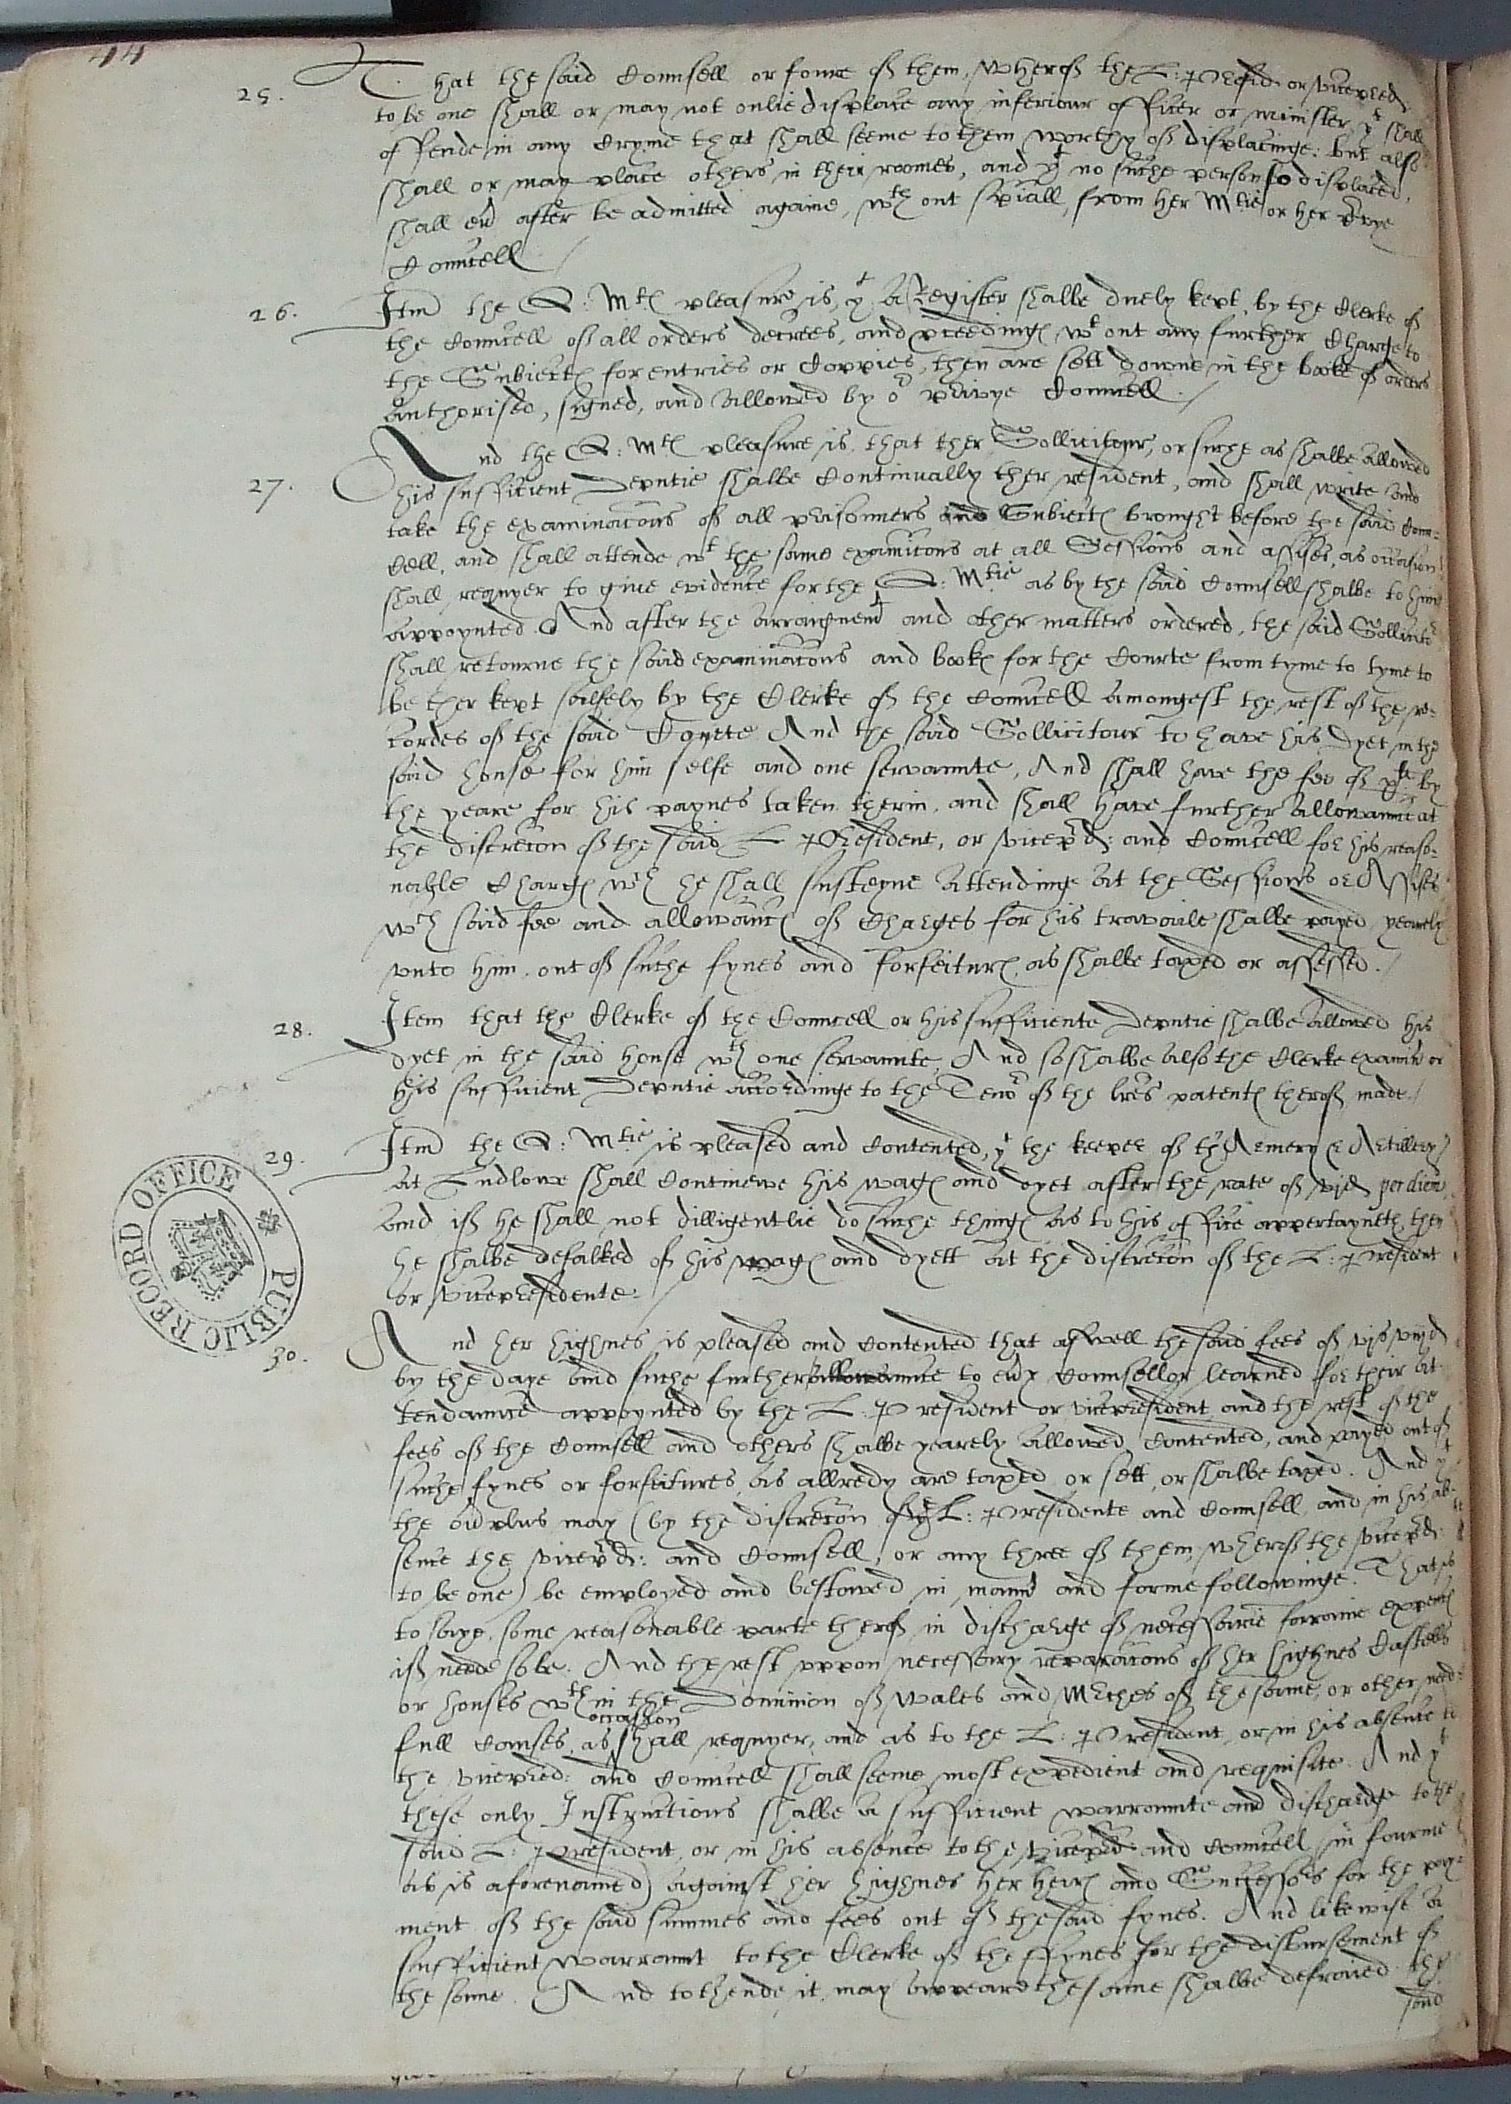 44
25. That the said Counsell or foure of them, wherof the L: Presid: or vicepresid:
to be one shall or may not onlie displace any inferiour officer or minister yt shall
offende in any cryme that shall seeme to them worthy of displacinge: but also
shall or may place others in their roomes, and yt no suche person so displaced,
shall eũ after be admitted againe, wth out spiall, from her Mtie or her pryvye
Councell /
26. Itm the Q: Mts pleasure is, yt a Register shalbe duely kept by the Clerke of
the Councell of all orders decrees, and pceedings wt out any further charge to
the Subiects for entries or coppies, then are sett downe in the booke of orders
authorised, signed, and allowed by or privye Councell. /
27. And the Q: Mts pleasure is that ther Sollicitour, or suche as shalbe allowed
his sufficient Deputie shalbe continually ther resident, and shall write and
take the examinacons of all prisonners and Subiects brought before the said Coun=
cell, and shall attende wt the same examicons at all Sessions and assises, as occasion
shall requyer to give evidence for the Q: Mtie as by the said Counsell shalbe to him
appoynted. And after the arraignemt and other matters ordered, the said Sollicitor
shall retourne the said examinacons and books for the Courte from tyme to tyme to
be ther kept saufely by the Clerke of the Councell amongest the rest of the re=
cordes of the said Courte. And the said Sollicitour to have his Dyet in the
said house for him selfe and one servaunte, And shall have the fee of by
the yeare for his paynes taken therin, and shall have further allowaunce at
the discrecon of the said L President, or vicepd: and Councell for his reaso=
nable Charges wch he shall susteyne attendinge at the Sessions or Assises
wch said fee and allowaunce of Charges for his travaile shalbe payed yearely
vnto him, out of suche fynes and forfeitures as shalbe taxed or assessed. /
28. Item that the Clerke of the Councell or his sufficiente Deputie shalbe allowed his
dyet in the said house wth one servaunte, And so shalbe also the Clerke examiner or
his sufficient Deputie accordinge to the Tenor of the lres patents therof made. /
29. Itm the Q: Mtie is pleased and contented, yt the keeper of the Armery & Artillery
at Ludlowe shall continewe his wages and dyet after the rate of vjd per diem
and if he shall not dilligentlie do suche things as to his office appertayneth, then
he shalbe defalked of his wages and dyett at the discrecon of the L: President
or vicepresidente: /
30. And her highnes is pleased and contented that aswell the said fees of vjs viijd
by the daye and suche further allowaunce to eũy Counsellor learned for their at
tendaunce appoynted by the L: President or vicepresident, and the rest of the
fees of the Counsell and others shalbe yearely allowed, contented, and payed out of
suche fynes or forfeitures as allredy are taxed or sett, or shalbe taxed. And yt
the oũplus may (by the discrecon of ye L: Presidente and Counsell, and in his ab=
sence the vicepd: and Counsell, or any three of them, wherof the vicepd:
to be one) be employed and bestowed in manner and forme followinge. That is
to saye, some reasonable parte therof in discharge of necessarie forraine expences
if neede so be. And the rest vppon necessary reparacons of her highnes Castells
or houses wth in the Dominion of Wales and Merches of the same, or other need=
full causes, as occasion shall requyer, and as to the L: President, or in his absence to
the vicepresid: and Councell shall seeme most expedient and requisite. And yt
these only Instructions shalbe a sufficient warraunte and discharge to the
said L: President, or in his absence to the vicepd and Councell, in fourme
as is aforenamed) against her highnes her heirs and Successors for the pay=
ment of the said summes and fees out of the said fynes. And likewise a
sufficient warraunt to the Clerke of the ffynes for the disbursement of
the same. And to thende it may appeare the same shalbe defraied the
said
PUBLIC RECORD OFFICE